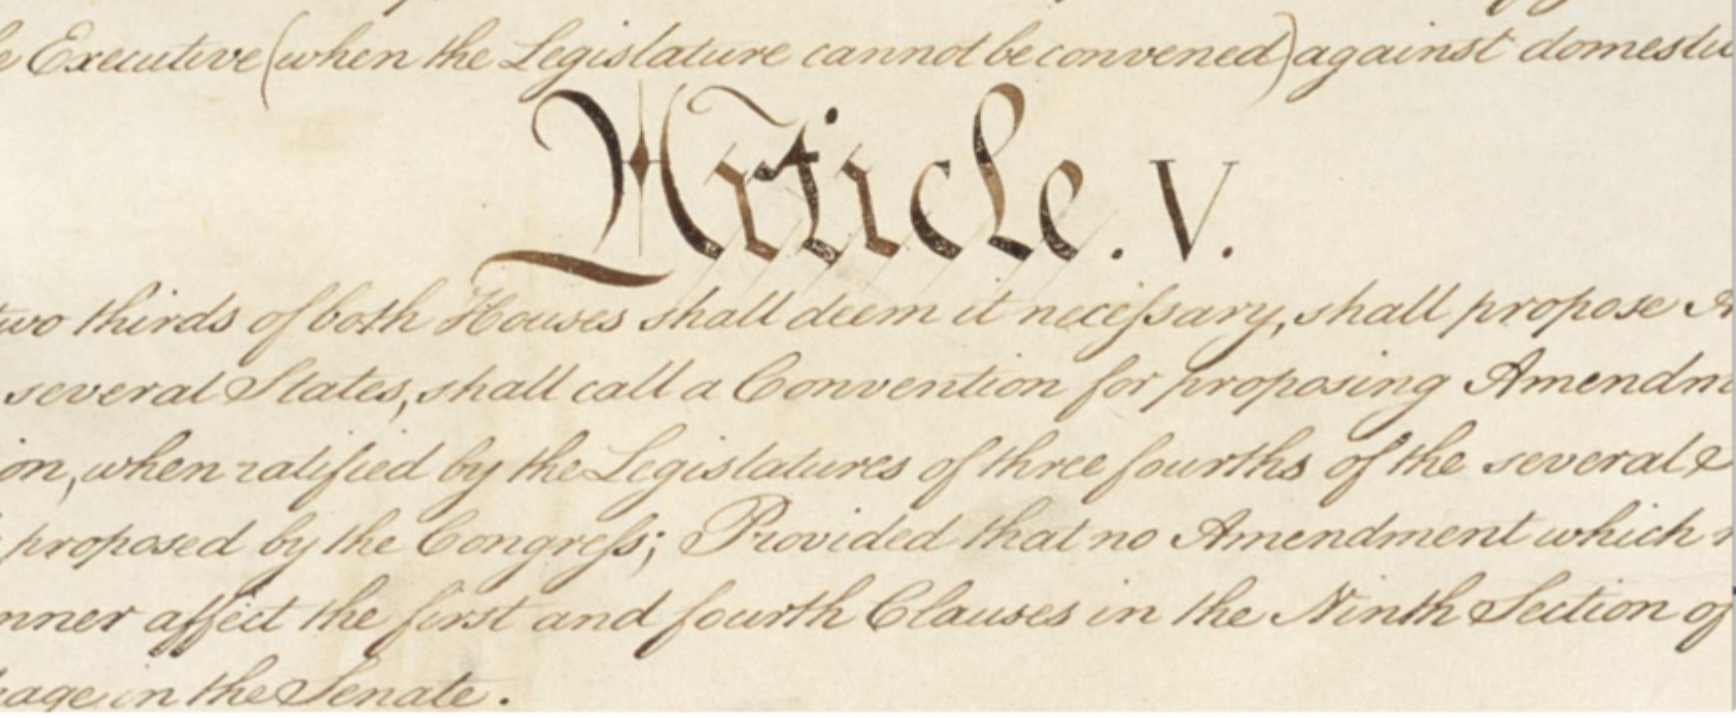 Executive (when the Legislature cannot be convened) against domestic
Article. V.
two thirds of both Houses shall deem it necessary, shall propose
several States, shall call a Convention for proposing Amendm
on, when ratified by the Legislatures of three fourths of the several
proposed by the Congress; Provided that no Amendment which
nner affect the first and fourth Clauses in the Ninth Section of
age in the Senate.